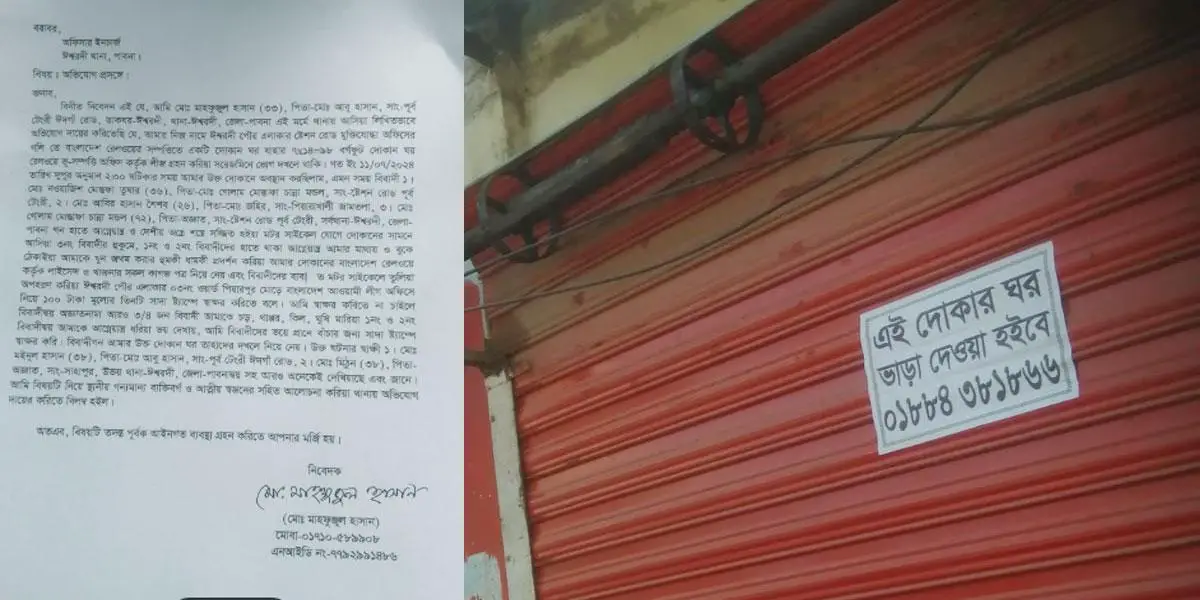 বরাবর,
অফিসার ইনচার্জ
ঈশ্বরদী থানা, পাবনা।
বিষয়। অভিযোগ প্রসঙ্গে :
জনাব,
বিনীত নিবেদন এই যে, আমি মোঃ মাহফুজুল হাসান (৩৩), পিতা-মোঃ আবু হাসান, সাং-পূর্ব
টেংরী ঈদগাঁ রোড, ডাকঘর-ঈশ্বরদী, থানা-ঈশ্বরদী, জেলা-পাবনা এই মর্মে থানায় আসিয়া লিখিতভাবে
অভিযোগ দায়ের করিতেছি যে, আমার নিজ নামে ঈশ্বরদী পৌর এলাকার ষ্টেশন রোড মুক্তিযোদ্ধা অফিসের
গলি তে বাংলাদেশ রেলওয়ের সম্পত্তিতে একটি দোকান ঘর যাহার ৭x১৪=৯৮ বর্গফুট দোকান ঘর
রেলওয়ে ভূ-সম্পত্তি অফিস কর্তৃক লীজ গ্রহন করিয়া সরেজমিনে ভোগ দখলে থাকি। গত ইং ১১/০৭/২০২৪
তারিখ দুপুর অনুমান ২:০০ ঘটিকার সময় আমার উক্ত দোকানে অবস্থান করছিলাম, এমন সময় বিবাদী ১।
মোঃ নওয়াজিশ মোস্তফা তুষার (৩৬), পিতা-মোঃ গোলাম মোস্তফা চান্না মন্ডল, সাং-ষ্টেশন রোড পূর্ব
টেংরী, ২। মোঃ আবির হাসান শৈশব (২৬), পিতা-মোঃ জহির, সাং-পিয়ারাখালী জামতলা, ৩। মোঃ
গোলাম মোস্তাফা চান্না মন্ডল (৭২), পিতা-অজ্ঞাত, সাং-ষ্টেশন রোড পূর্ব টেংরী, সর্বথানা-ঈশ্বরদী, জেলা-
পাবনা গন হাতে আগ্নেয়াস্ত্র ও দেশীয় অস্ত্র শস্ত্রে সজ্জিত হইয়া মটর সাইকেল যোগে দোকানের সামনে
আসিয়া ৩নং বিবাদীর হুকুমে, ১নং ও ২নং বিবাদীদের হাতে থাকা আগ্নেয়াস্ত্র আমার মাথায় ও বুকে
ঠেকাইয়া আমাকে খুন জখম করার হুমকী ধামকী প্রদর্শন করিয়া আমার দোকানের বাংলাদেশ রেলওয়ে
কর্তৃক লাইসেন্স ও খাজনার সকল কাগজ পত্র নিয়ে নেয় এবং বিবাদীদের ব্যব ত মটর সাইকেলে তুলিয়া
অপহরণ করিয়া ঈশ্বরদী পৌর এলাকার ০৩নং ওয়ার্ড পিয়ারপুর মোড়ে বাংলাদেশ আওয়ামী লীগ অফিসে
নিয়ে ১০০ টাকা মুল্যের তিনটি সাদা ষ্ট্যাম্পে স্বাক্ষর করিতে বলে। আমি স্বাক্ষর করিতে না চাইলে
বিবাদীদ্বয় অজ্ঞাতনামা আরও ৩/৪ জন বিবাদী আমাকে চড়, থাপ্পর, কিল, ঘুষি মারিয়া ১নং ও ২নং
বিবাদীদ্বয় আমাকে আগ্নেয়াস্ত্র ধরিয়া ভয় দেখায়, আমি বিবাদীদের ভয়ে প্রানে বাঁচার জন্য সাদা ষ্ট্যাম্পে
স্বাক্ষর করি। বিবাদীগন আমার উক্ত দোকান ঘর তাহাদের দখলে নিয়ে নেয়। উক্ত ঘটনার স্বাক্ষী ১। মোঃ
মইনুল হাসান (৩৮), পিতা-মোঃ আবু হাসান, সাং-পূর্ব টেংরী ঈদগাঁ রোড, ২। মোঃ মিঠুন (৩৮), পিতা-
অজ্ঞাত, সাং-সাহাপুর, উভয় থানা-ঈশ্বরদী, জেলা-পাবনাদ্বয় সহ আরও অনেকেই দেখিয়াছে এবং জানে।
আমি বিষয়টি নিয়ে স্থানীয় গন্যমান্য ব্যক্তিবর্গ ও আত্নীয় স্বজনের সহিত আলোচনা করিয়া থানায় অভিযোগ
দায়ের করিতে বিলম্ব হইল।
অতএব, বিষয়টি তদন্ত পূর্বক আইনগত ব্যবস্থা গ্রহন করিতে আপনার মর্জি হয়।
নিবেদক
মো. মাহফুজুল হাসান
(মোঃ মাহফুজুল হাসান)
মোবা-০১৭১০-৫৮৯৯০৮
এনআইডি নং-৭৭৯২৯৯১৪৮৬
এই দোকার ঘর
ভাড়া দেওয়া হইবে
০১৮৮৪ ৩৮১৮৬৬